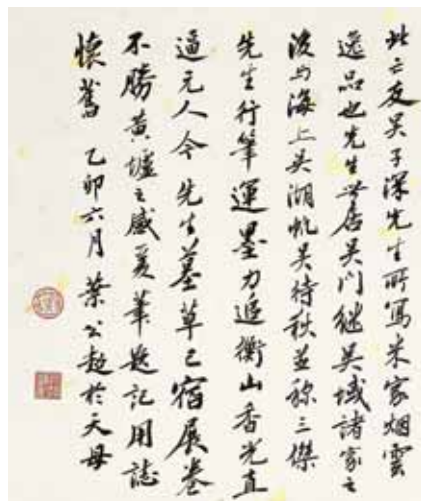 此亡友吴子深先生所寫米家烟雲
逸品也先生世居吴門繼吴域諸家之
後与海上吴湖帆吴待秋並称三傑
先生行筆運墨力追衡山香光直
逼元人今先生墓草已宿展卷
不勝黄壚之感爰筆題記用誌
懷舊 乙卯六月 葉公超於天母